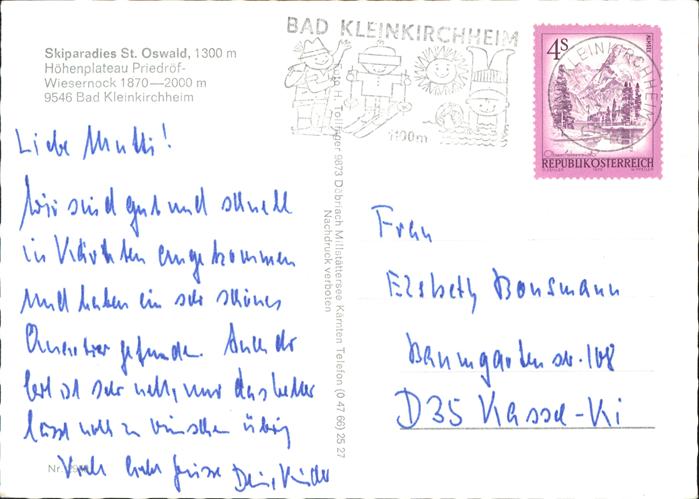 Skiparadies St. Oswald, 1300 m
Höhenplateau Priedröf-
Wiesernock 1870—2000 m
9546 Bad Kleinkirchheim
BAD KLEINKIRCHHEIM
1100m
4S
ALMSEE
REPUBLIK ÖSTERREICH
KLEINKIRCHHEIM
Liebe Mutti!
Wir sind gut und schnell
in Kärnten angekommen
und haben ein sehr schönes
Quartier gefunden. Auch der
ist sehr nett, nur das Wetter
lässt noch zu wünschen übrig
Viele liebe Grüsse Deine Kinder
H. Tollinger 9873 Döbriach Millstättersee Kärnten Telefon (0 47 66) 25 27
Nachdruck verboten
Frau
Elsbeth Bonsmann
Baumgartenstr. 108
D35 Kassel-Ki
Nr.